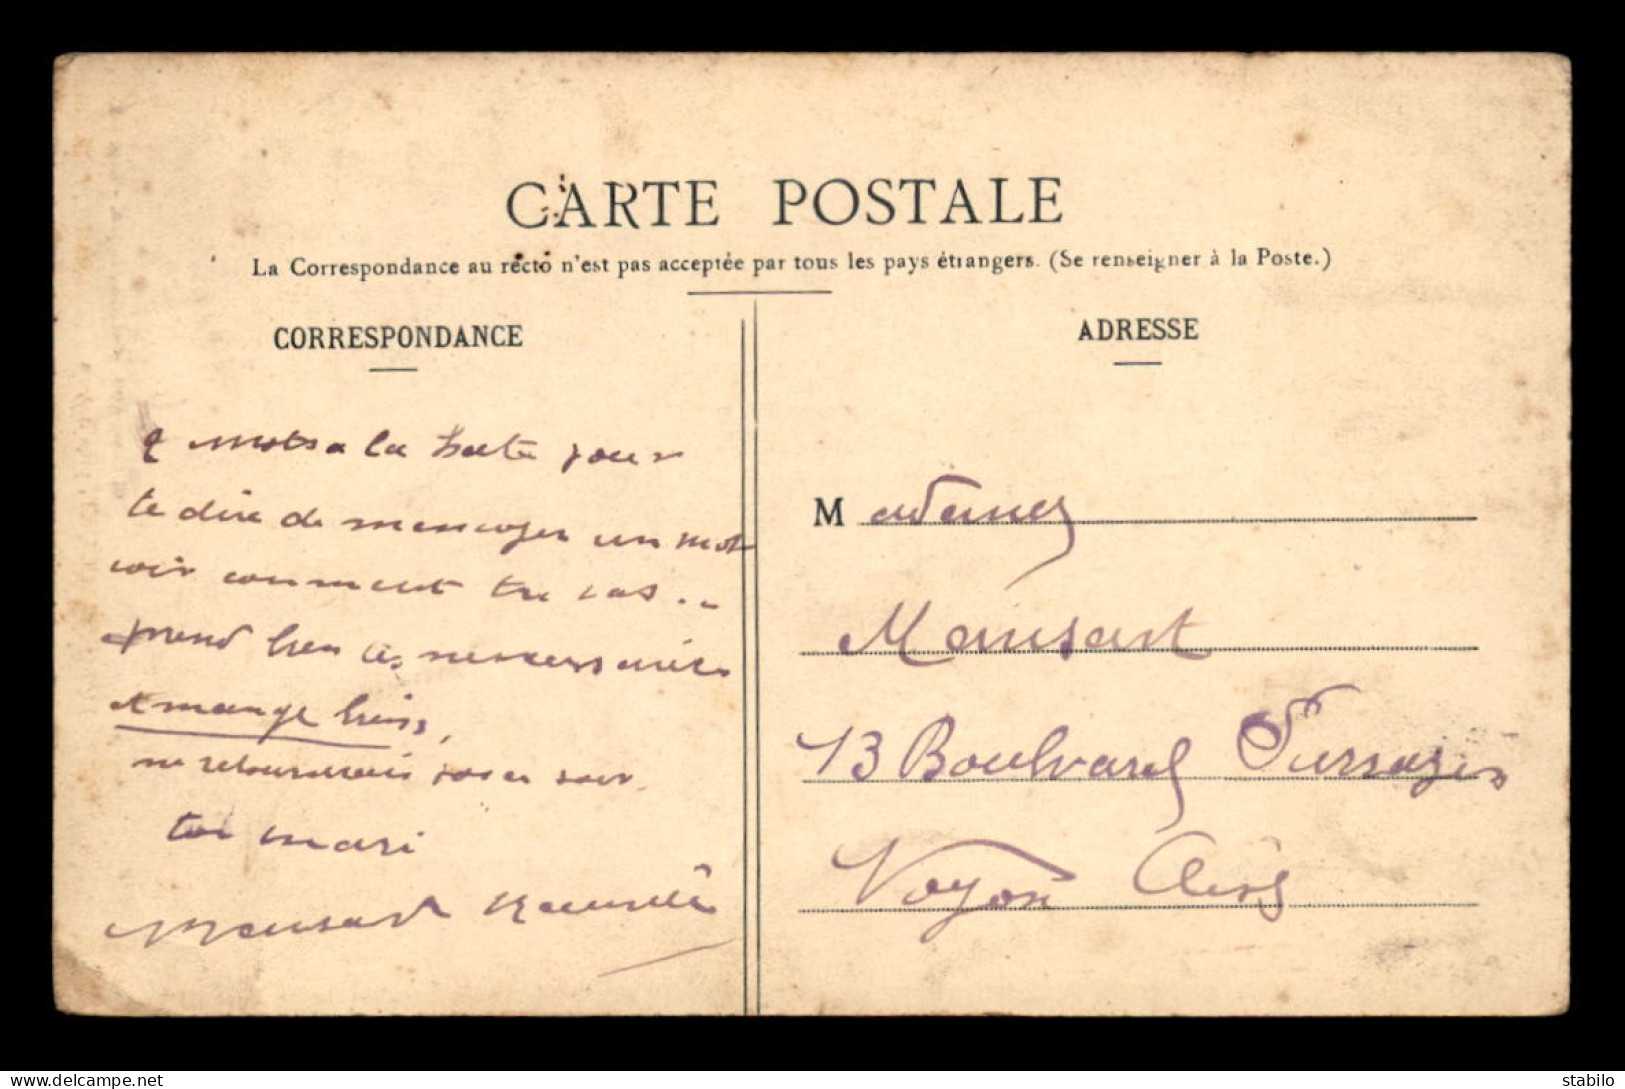 CARTE POSTALE
La Correspondance au recto n'est pas acceptée par tous les pays étrangers. (Se renseigner à la Poste.)
CORRESPONDANCE
ADRESSE
2 mots a la hate pour
te dire de mencoyer un mot
voir comment tu vas..
prend bien tes
et mange bien,
pas ce soir
ton mari
Mansart
M adame
Mansart
13 Boulvard
Noyon Oise
delcampe.net
stabilo